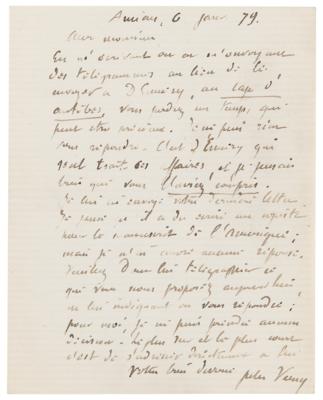 Amiens, 6 janv. 79.
Cher monsieur
En m'écrivant ou en m'envoyant
des télégrammes au lieu de les
envoyer à D'Ennery, au cap d'
antibes, vous perdez un temps, qui
peut être précieux. Je ne puis rien
vous répondre. C'est D'Ennery qui
seul traite des affaires, et je pensais
bien que vous l'aviez compris.
Je lui ai envoyé votre dernière lettre
Je pense qu'il a dû écrire
pour le manuscrit de l'Amérique;
mais je n'ai encore aucune réponse.
Veuillez donc lui télégraphier ce
que vous nous proposez aujourd'hui,
en lui indiquant où vous répondre;
pour moi, je ne puis prendre aucune
décision. Le plus sûr et le plus court
c'est de s'adresser directement à lui
votre bien dévoué Jules Verne